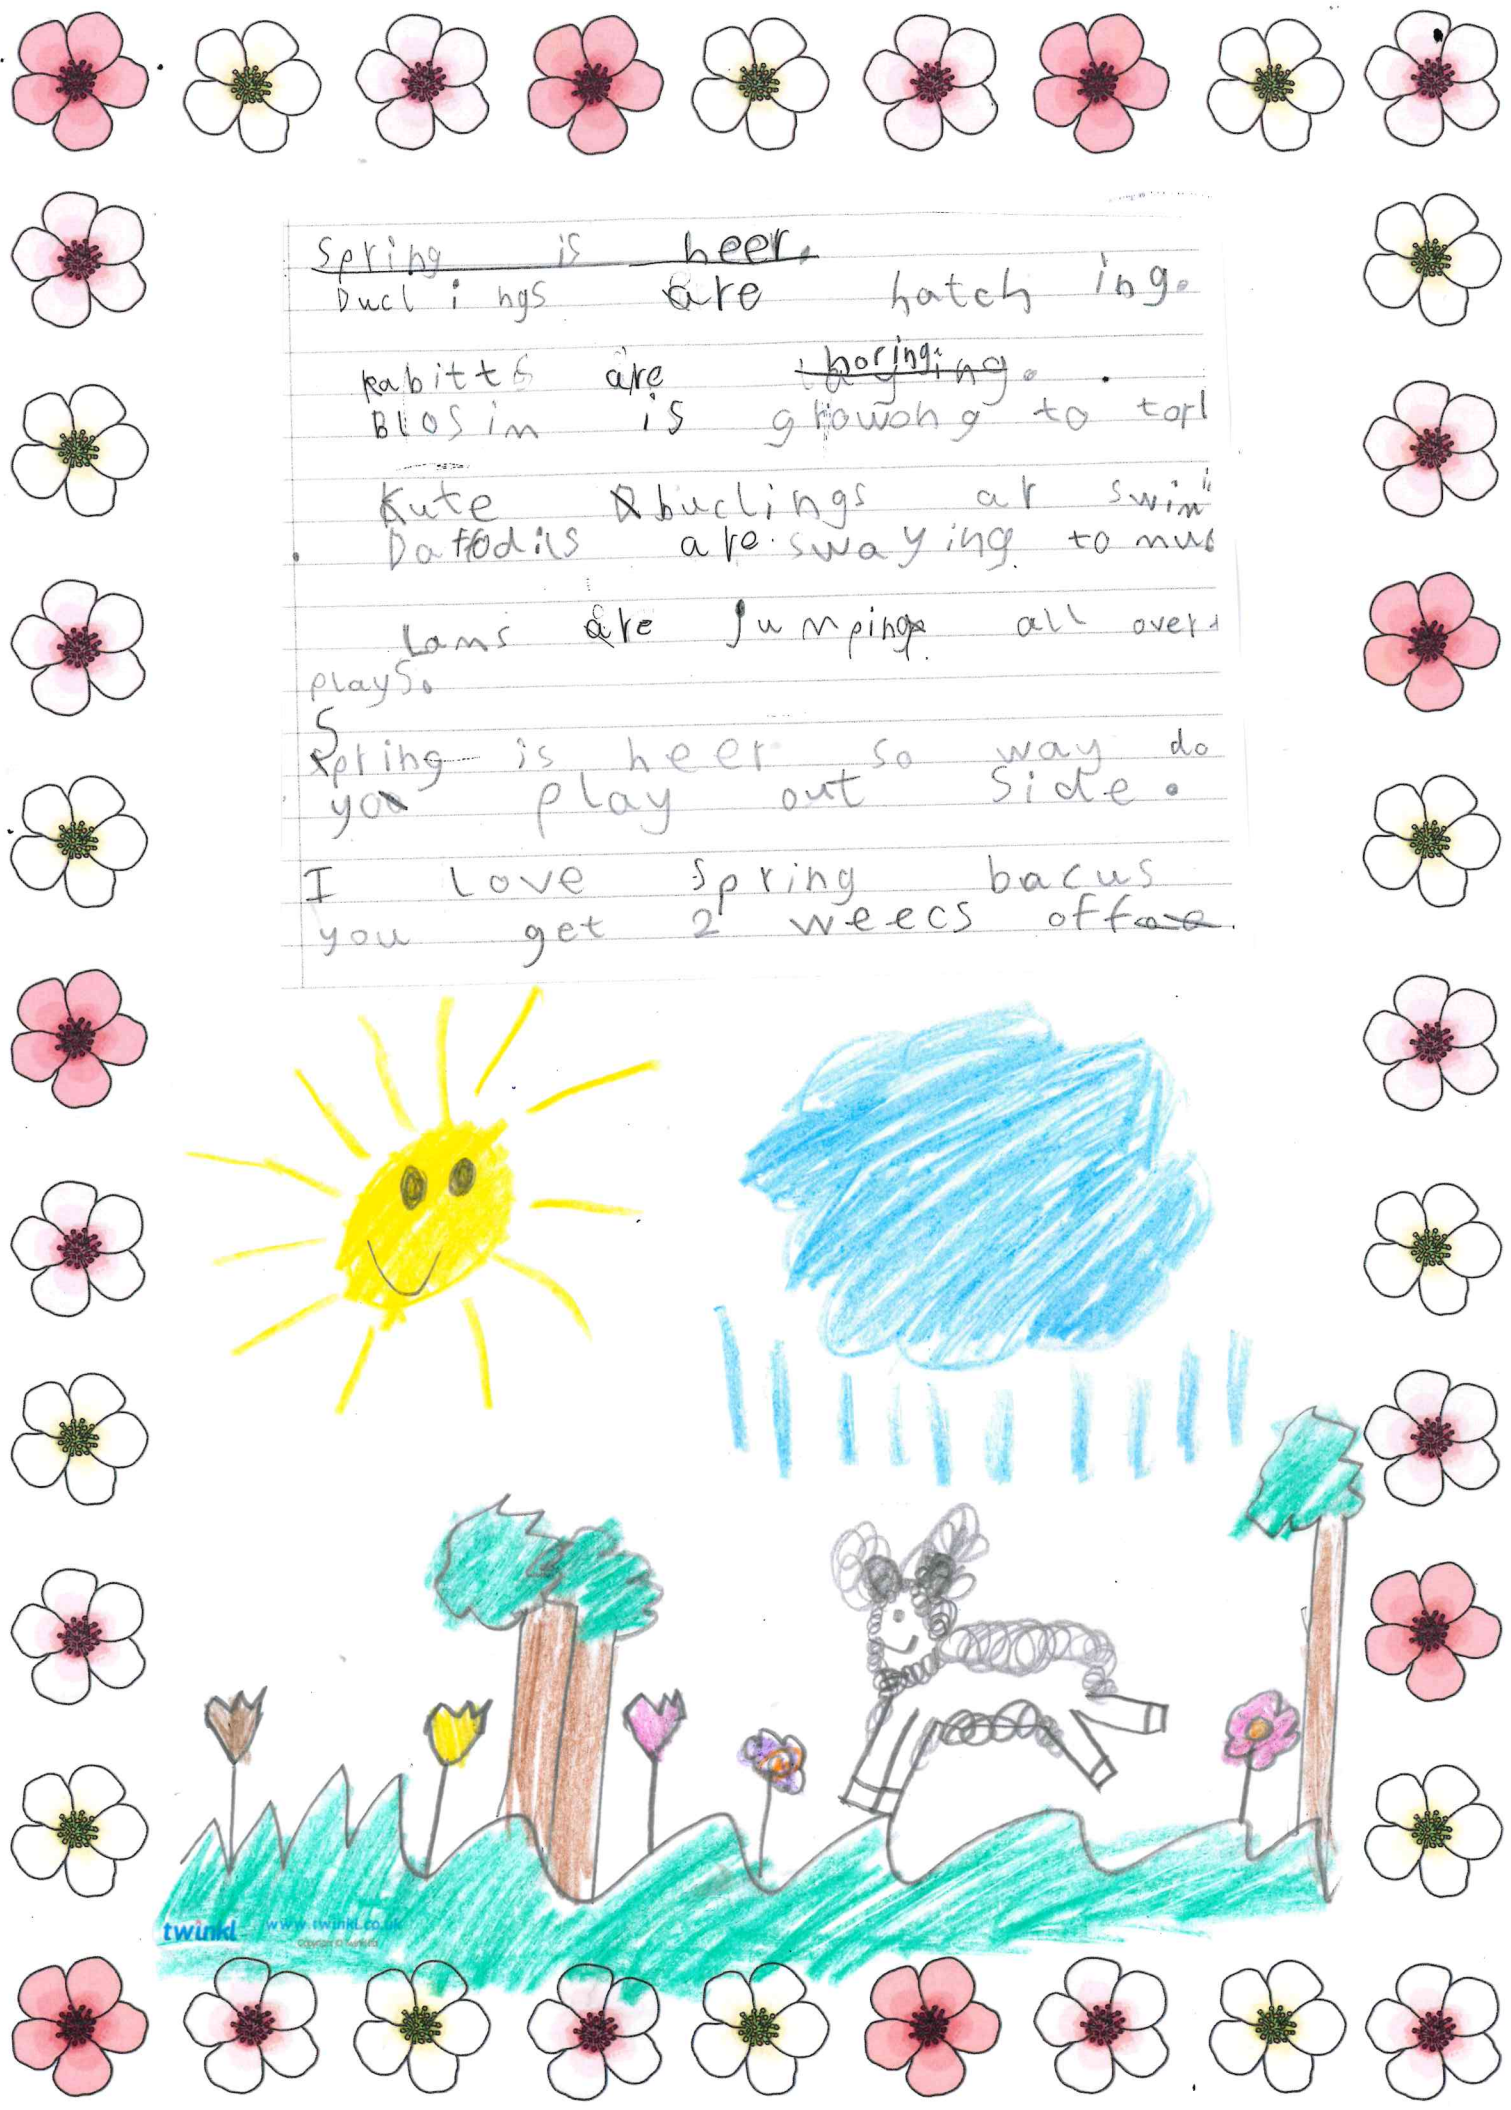 Spring is heer.
Duclings are hatching.
Rabitts are
Blosim is growong to
Kute buclings ar swim
Daffodils are swaying to
Lams are Jumping all over
plays.
Spring is heer so way do
you play out side.
I love spring bacus
you get 2 weecs off
twinkl www.twinkl.co.uk